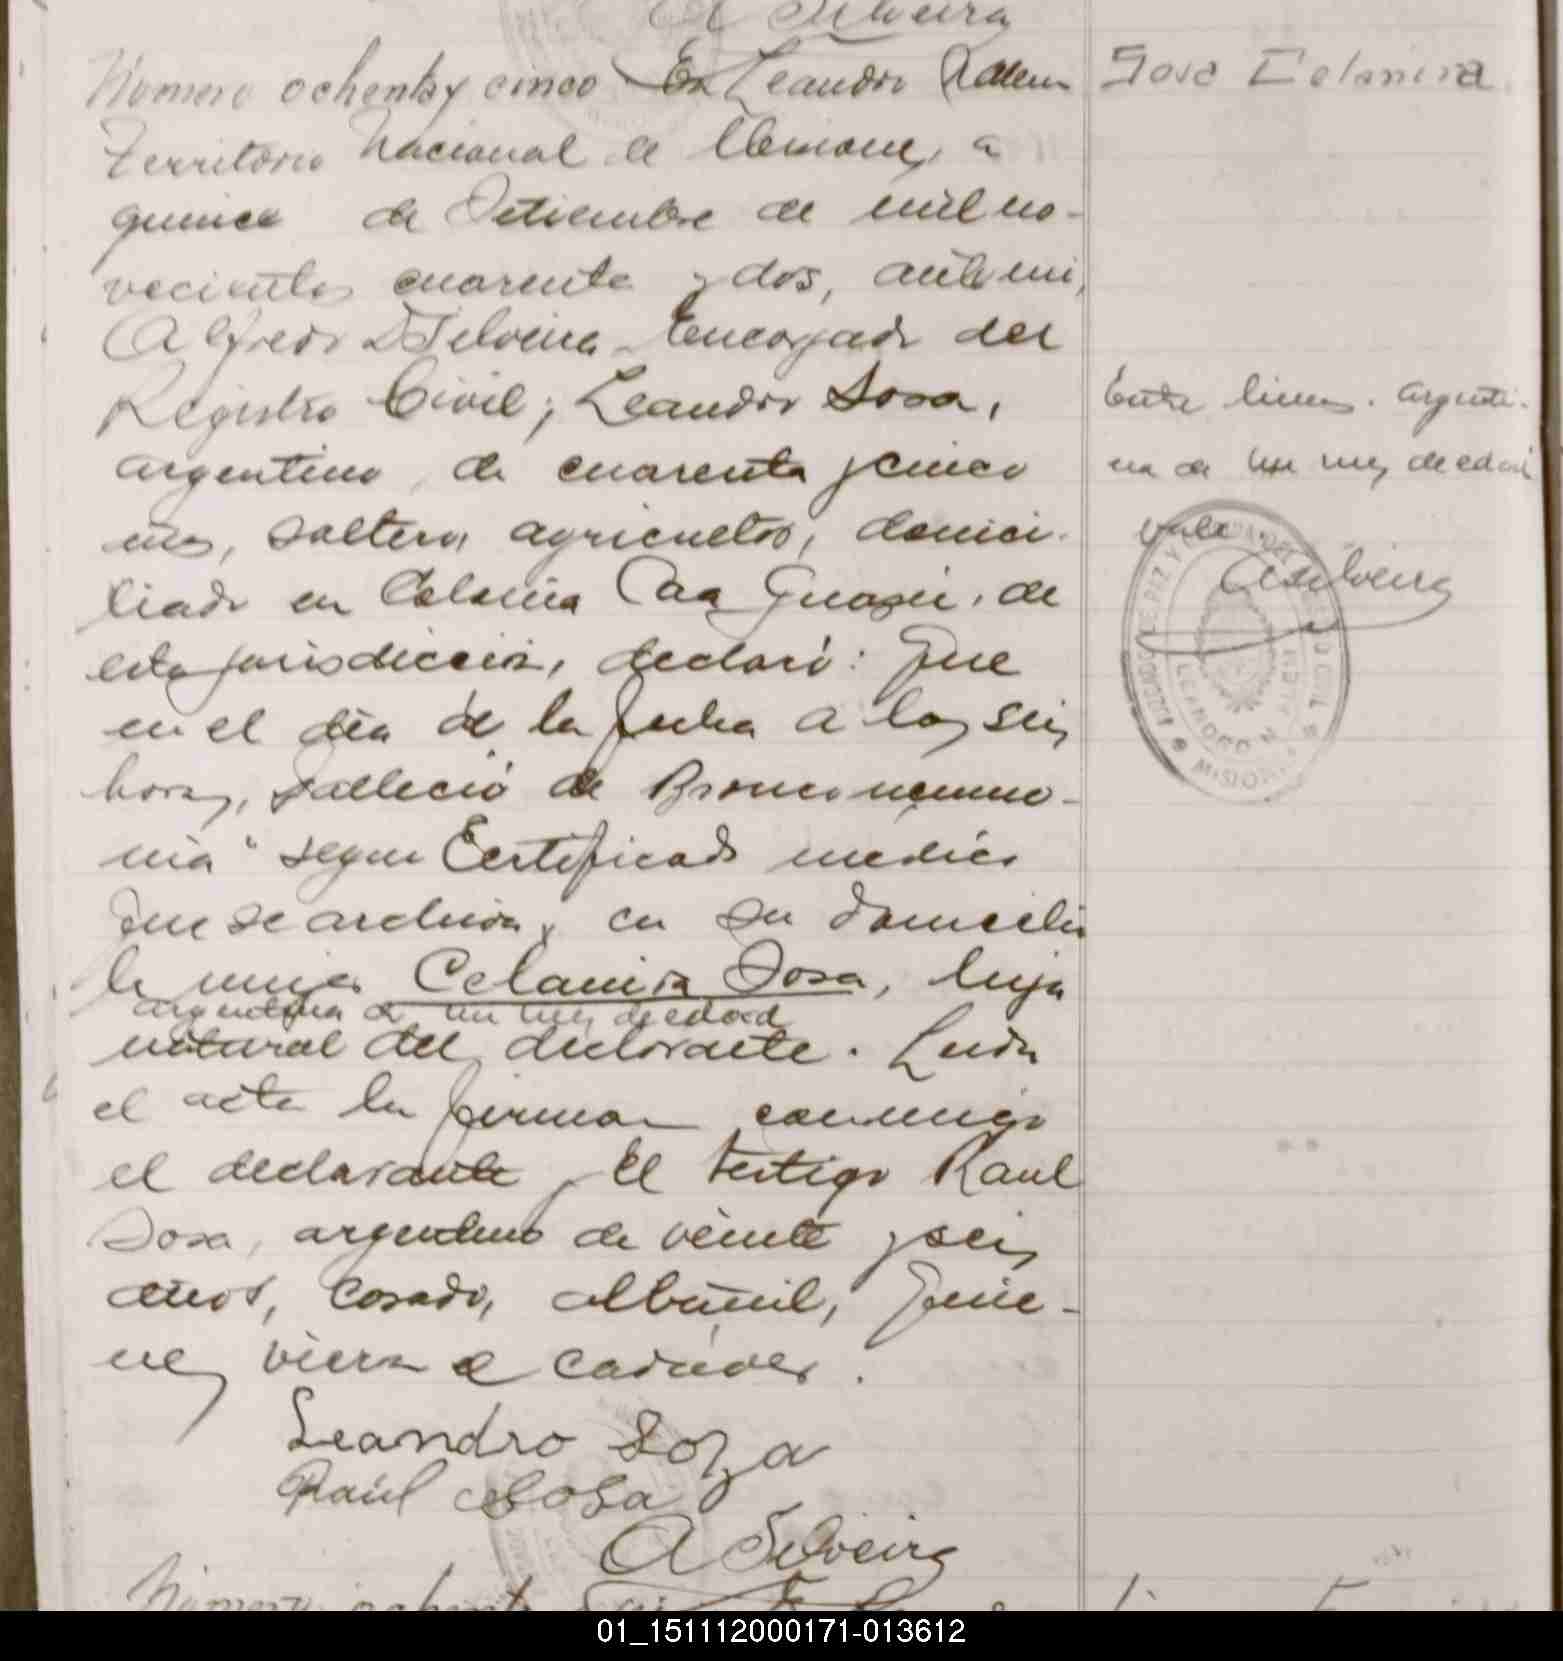 A Silveira
Numero ochenta y cinco En Leandro N Alem
Territorio Nacional de Misiones, a
quince de Setiembre de mil no-
vecientos cuarenta y dos, ante mi,
Alfredo D Silveira Encargado del
Registro Civil; Leandro Sosa,
argentino, de cuarenta y cinco
años, soltero, agricultor, domici-
liado en Colonia Caa Guazú, de
esta jurisdiccion, declaró: Que
en el dia de la fecha a las seis
horas, falleció de Bronconeumo-
nia" segun Certificado medico
que se archiva, en su domicilio
la mujer Celamira Sosa, hija
argentina de un mes de edad
natural del declarante. Leida
el acta la firman conmigo
el declarante y el testigo Raul
Sosa, argentino de veinte y seis
años, casado, albañil, quie-
nes vieron el cadaver.
Leandro Soza
Raúl Sosa
A Silveira
Numero ochenta y seis En L
Sosa Celamira
Entre lineas. argenti-
na de un mes de edad
vale.
A Silveira
JUZGADO DE PAZ Y REGISTRO CIVIL
LEANDRO N. ALEM
MISIONES
01_151112000171-013612